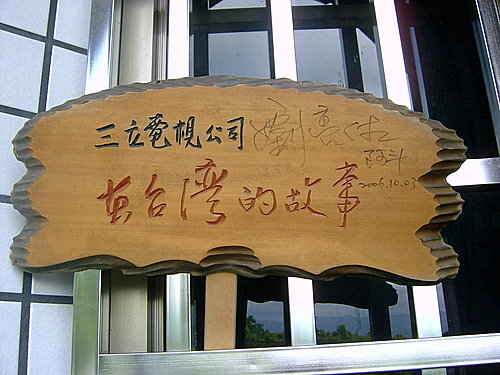 三立電視公司 劉亮佐
阿斗
2006.10.03
在台湾的故事